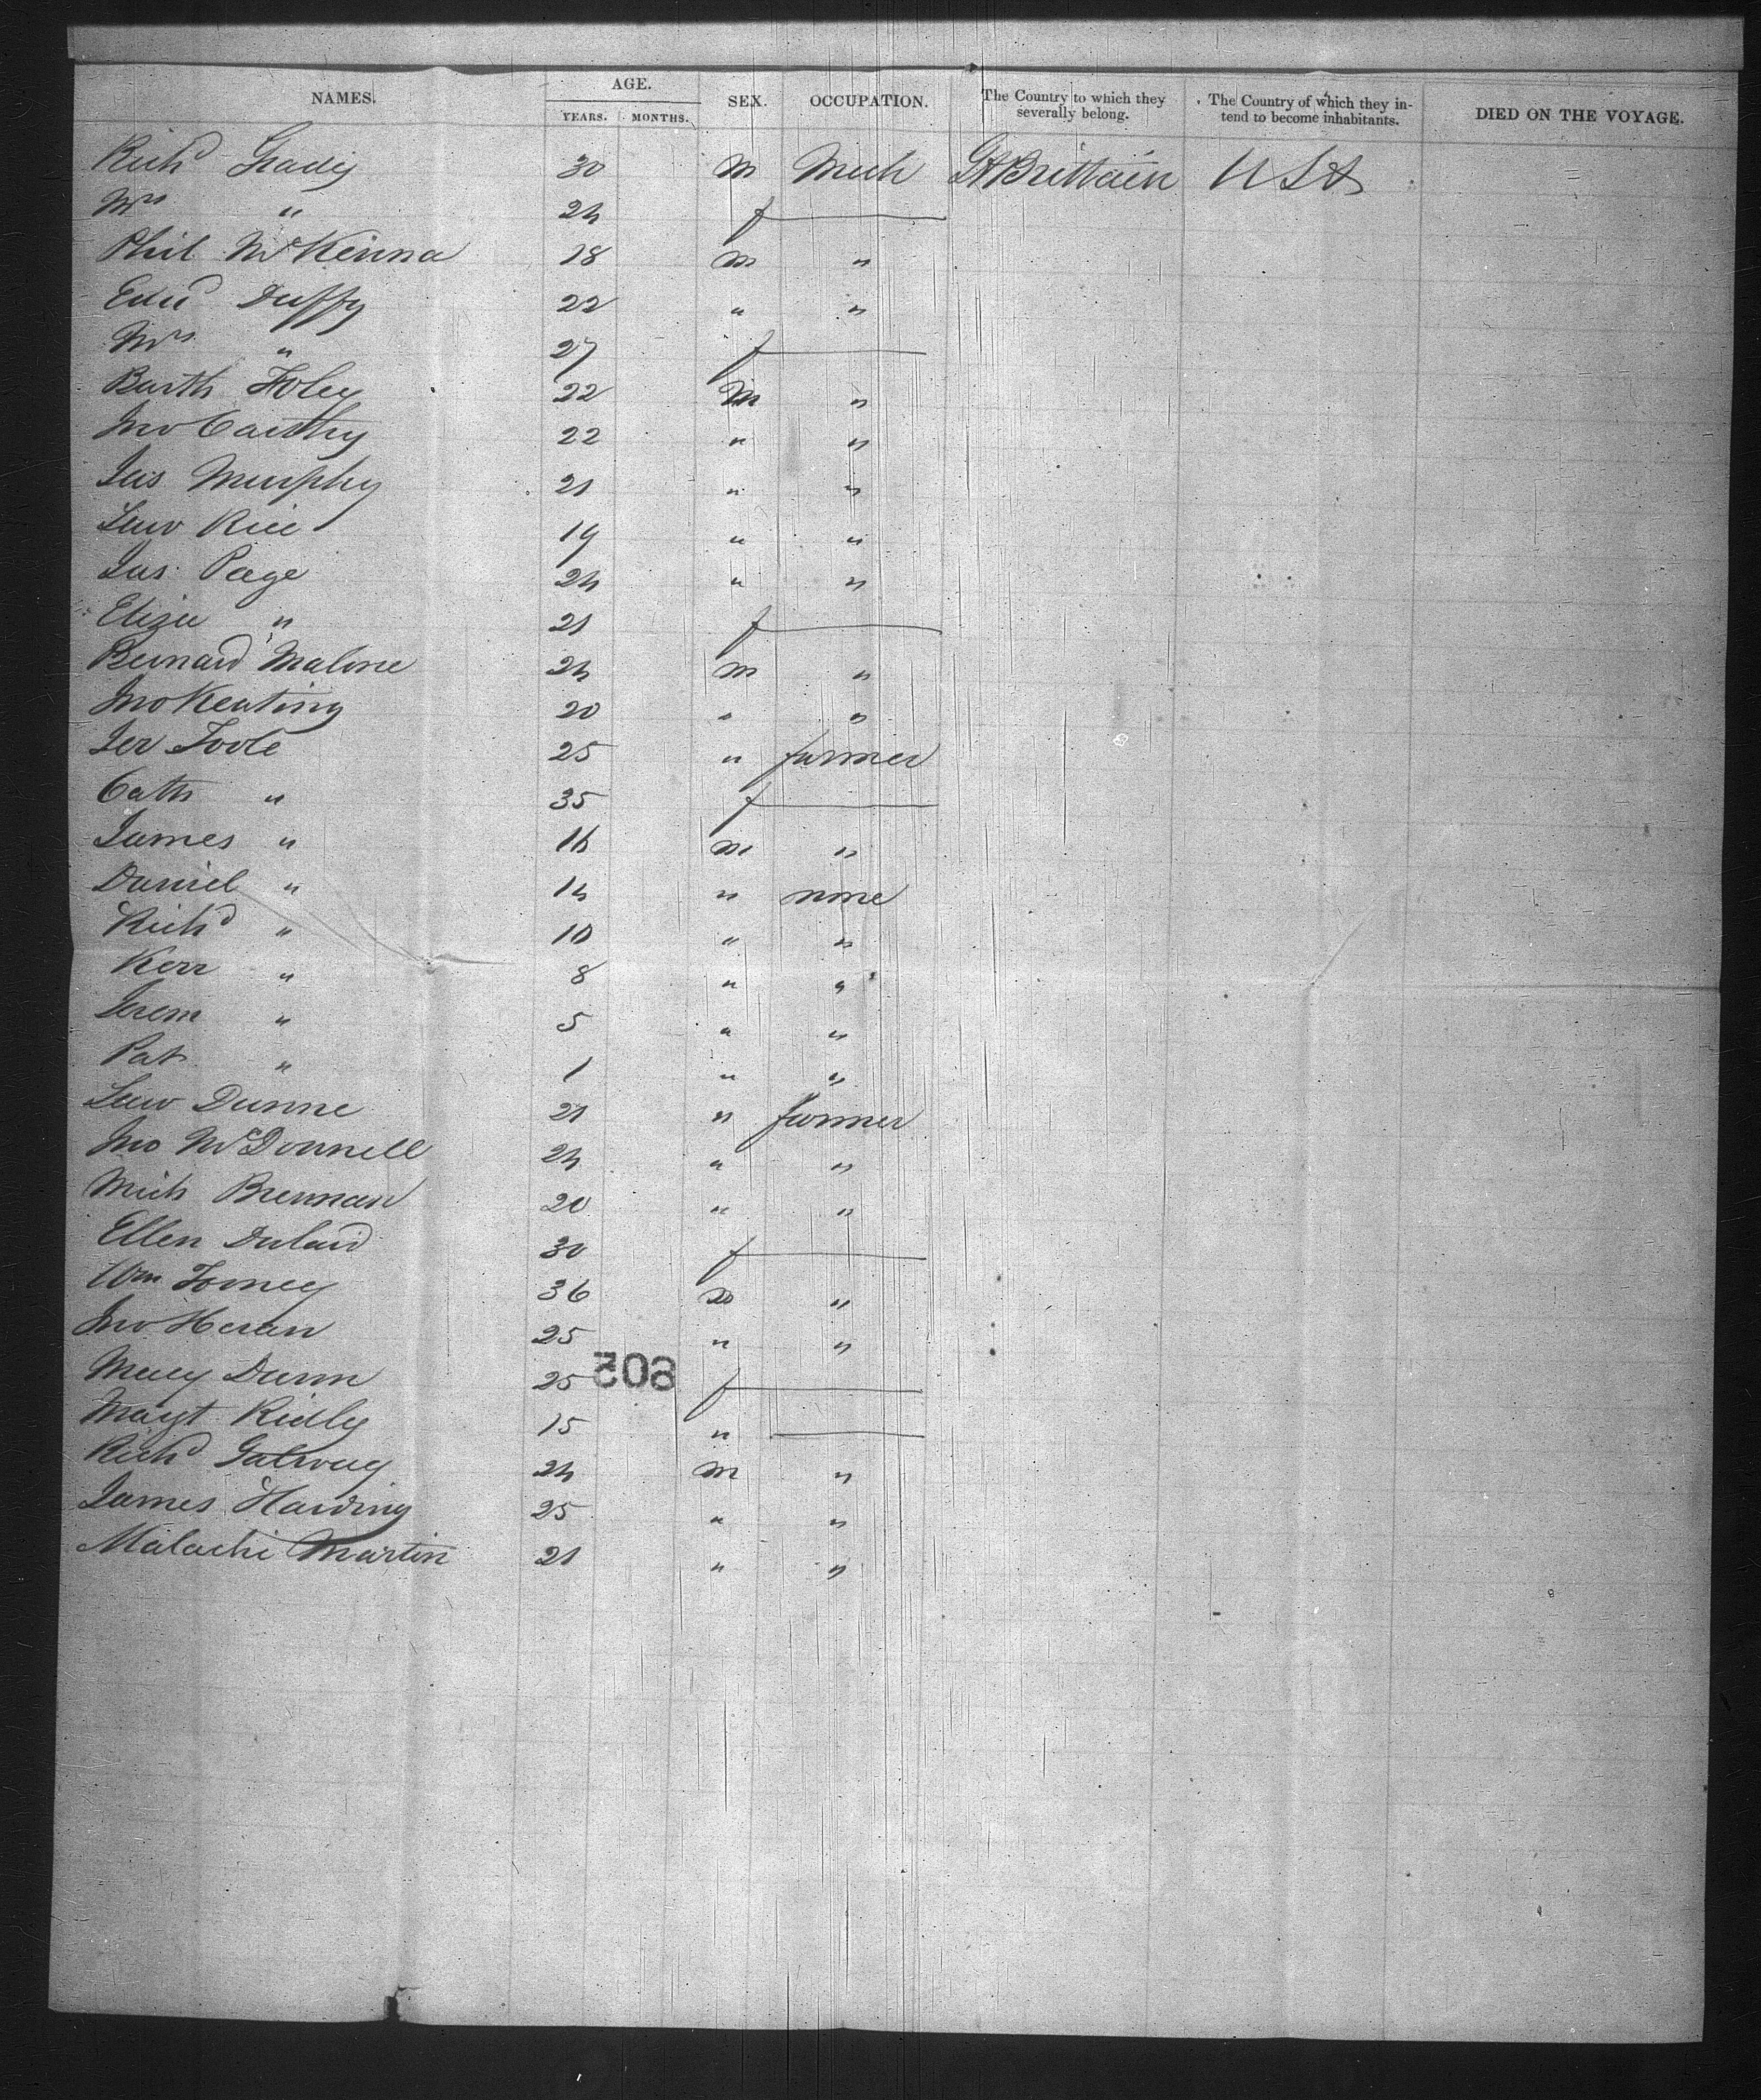 NAMES. AGE. SEX. OCCUPATION. The Country to which they severally belong. The Country of which they intend to become inhabitants. DIED ON THE VOYAGE.
YEARS. MONTHS.
Richd Grady 30 m Mech Gt Brittain USA
Mrs " 24 f
Phil McKenna 18 m "
Edwd Duffy 22 " "
Mrs " 27 f
Barth Foley 22 m "
Jno Carthy 22 " "
Jas Murphy 21 " "
Law Rice 19 " "
Jas Page 24 " "
Eliza " 21 f
Bernard Malone 24 m "
Jno Keating 20 " "
Jer Toole 25 " farmer
Cath " 35 f
James " 16 m "
Daniel " 14 " none
Richd " 10 " "
Kerr " 8 " "
Jerem " 5 " "
Pat " 1 " "
Law Dunne 21 " farmer
Jno McDonnell 24 " "
Mich Brennan 20 " "
Ellen 30 f
Wm 36 m "
Jno Heran 25 " "
Mary Dunn 25 f
605
Margt Ridly 15 "
Richd Galway 24 m "
James Harding 25 " "
Malachi Martin 21 " "